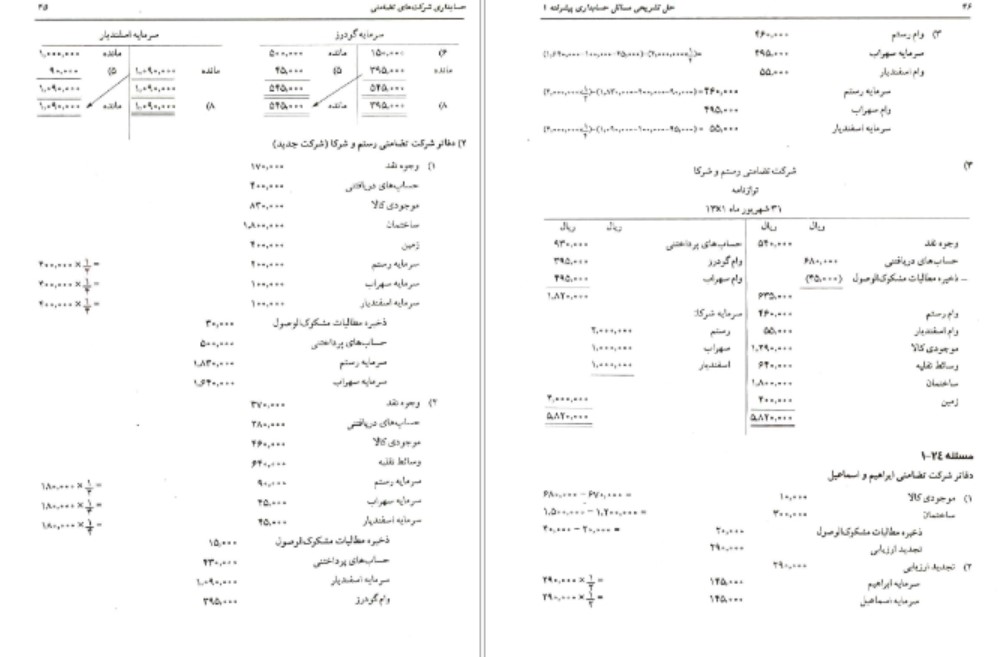 حسابداری شرکت‌های تضامنی ۳۵
سرمایه گودرز
۶) ۱۵۰,۰۰۰ مانده ۵۰۰,۰۰۰
مانده ۳۹۵,۰۰۰ ۵) ۴۵,۰۰۰
۵۴۵,۰۰۰ ۵۴۵,۰۰۰
۸) ۳۹۵,۰۰۰ مانده ۵۴۵,۰۰۰
سرمایه اسفندیار
مانده ۱,۰۰۰,۰۰۰
مانده ۱,۰۹۰,۰۰۰ ۵) ۹۰,۰۰۰
۱,۰۹۰,۰۰۰ ۱,۰۹۰,۰۰۰
۸) ۱,۰۹۰,۰۰۰ مانده ۱,۰۹۰,۰۰۰
۷) دفاتر شرکت تضامنی رستم و شرکا (شرکت جدید)
۱) وجوه نقد ۱۷۰,۰۰۰
حساب‌های دریافتنی ۴۰۰,۰۰۰
موجودی کالا ۸۳۰,۰۰۰
ساختمان ۱,۸۰۰,۰۰۰
زمین ۴۰۰,۰۰۰
سرمایه رستم ۲۰۰,۰۰۰ = ۴۰۰,۰۰۰ × ۱/۲
سرمایه سهراب ۱۰۰,۰۰۰ = ۴۰۰,۰۰۰ × ۱/۴
سرمایه اسفندیار ۱۰۰,۰۰۰ = ۴۰۰,۰۰۰ × ۱/۴
ذخیره مطالبات مشکوک‌الوصول ۳۰,۰۰۰
حساب‌های پرداختنی ۵۰۰,۰۰۰
سرمایه رستم ۱,۸۳۰,۰۰۰
سرمایه سهراب ۱,۶۴۰,۰۰۰
۲) وجوه نقد ۳۷۰,۰۰۰
حساب‌های دریافتنی ۲۸۰,۰۰۰
موجودی کالا ۴۶۰,۰۰۰
وسائط نقلیه ۶۴۰,۰۰۰
سرمایه رستم ۹۰,۰۰۰ = ۱۸۰,۰۰۰ × ۱/۲
سرمایه سهراب ۴۵,۰۰۰ = ۱۸۰,۰۰۰ × ۱/۴
سرمایه اسفندیار ۴۵,۰۰۰ = ۱۸۰,۰۰۰ × ۱/۴
ذخیره مطالبات مشکوک‌الوصول ۱۵,۰۰۰
حساب‌های پرداختنی ۴۳۰,۰۰۰
سرمایه اسفندیار ۱,۰۹۰,۰۰۰
وام گودرز ۳۹۵,۰۰۰
۳۶ حل تشریحی مسائل حسابداری پیشرفته ۱
۳) وام رستم ۴۶۰,۰۰۰
سرمایه سهراب ۴۹۵,۰۰۰ = (۱,۶۴۰,۰۰۰-۱۰۰,۰۰۰-۴۵,۰۰۰)-(۴,۰۰۰,۰۰۰×۱/۴)
وام اسفندیار ۵۵,۰۰۰
سرمایه رستم ۴۶۰,۰۰۰ = (۴,۰۰۰,۰۰۰×۱/۲)-(۱,۸۳۰,۰۰۰-۲۰۰,۰۰۰-۹۰,۰۰۰)
وام سهراب ۴۹۵,۰۰۰
سرمایه اسفندیار ۵۵,۰۰۰ = (۴,۰۰۰,۰۰۰×۱/۴)-(۱,۰۹۰,۰۰۰-۱۰۰,۰۰۰-۴۵,۰۰۰)
۳)
شرکت تضامنی رستم و شرکا
ترازنامه
۳۱ شهریور ماه ۱۳۸۱
ریال ریال ریال ریال
وجوه نقد ۵۴۰,۰۰۰ حساب‌های پرداختنی ۹۳۰,۰۰۰
حساب‌های دریافتنی ۶۸۰,۰۰۰ وام گودرز ۳۹۵,۰۰۰
– ذخیره مطالبات مشکوک‌الوصول (۴۵,۰۰۰) وام سهراب ۴۹۵,۰۰۰
۶۳۵,۰۰۰ ۱,۸۲۰,۰۰۰
وام رستم ۴۶۰,۰۰۰ سرمایه شرکا:
وام اسفندیار ۵۵,۰۰۰ رستم ۲,۰۰۰,۰۰۰
موجودی کالا ۱,۲۹۰,۰۰۰ سهراب ۱,۰۰۰,۰۰۰
وسائط نقلیه ۶۴۰,۰۰۰ اسفندیار ۱,۰۰۰,۰۰۰
ساختمان ۱,۸۰۰,۰۰۰
زمین ۴۰۰,۰۰۰ ۴,۰۰۰,۰۰۰
۵,۸۲۰,۰۰۰ ۵,۸۲۰,۰۰۰
مسئله ۲۴-۱
دفاتر شرکت تضامنی ابراهیم و اسماعیل
۱) موجودی کالا ۱۰,۰۰۰ = ۶۸۰,۰۰۰ – ۶۷۰,۰۰۰
ساختمان ۳۰۰,۰۰۰ = ۱,۵۰۰,۰۰۰ – ۱,۲۰۰,۰۰۰
ذخیره مطالبات مشکوک‌الوصول ۲۰,۰۰۰ = ۴۰,۰۰۰ – ۲۰,۰۰۰
تجدید ارزیابی ۲۹۰,۰۰۰
۲) تجدید ارزیابی ۲۹۰,۰۰۰
سرمایه ابراهیم ۱۴۵,۰۰۰ = ۲۹۰,۰۰۰ × ۱/۲
سرمایه اسماعیل ۱۴۵,۰۰۰ = ۲۹۰,۰۰۰ × ۱/۲